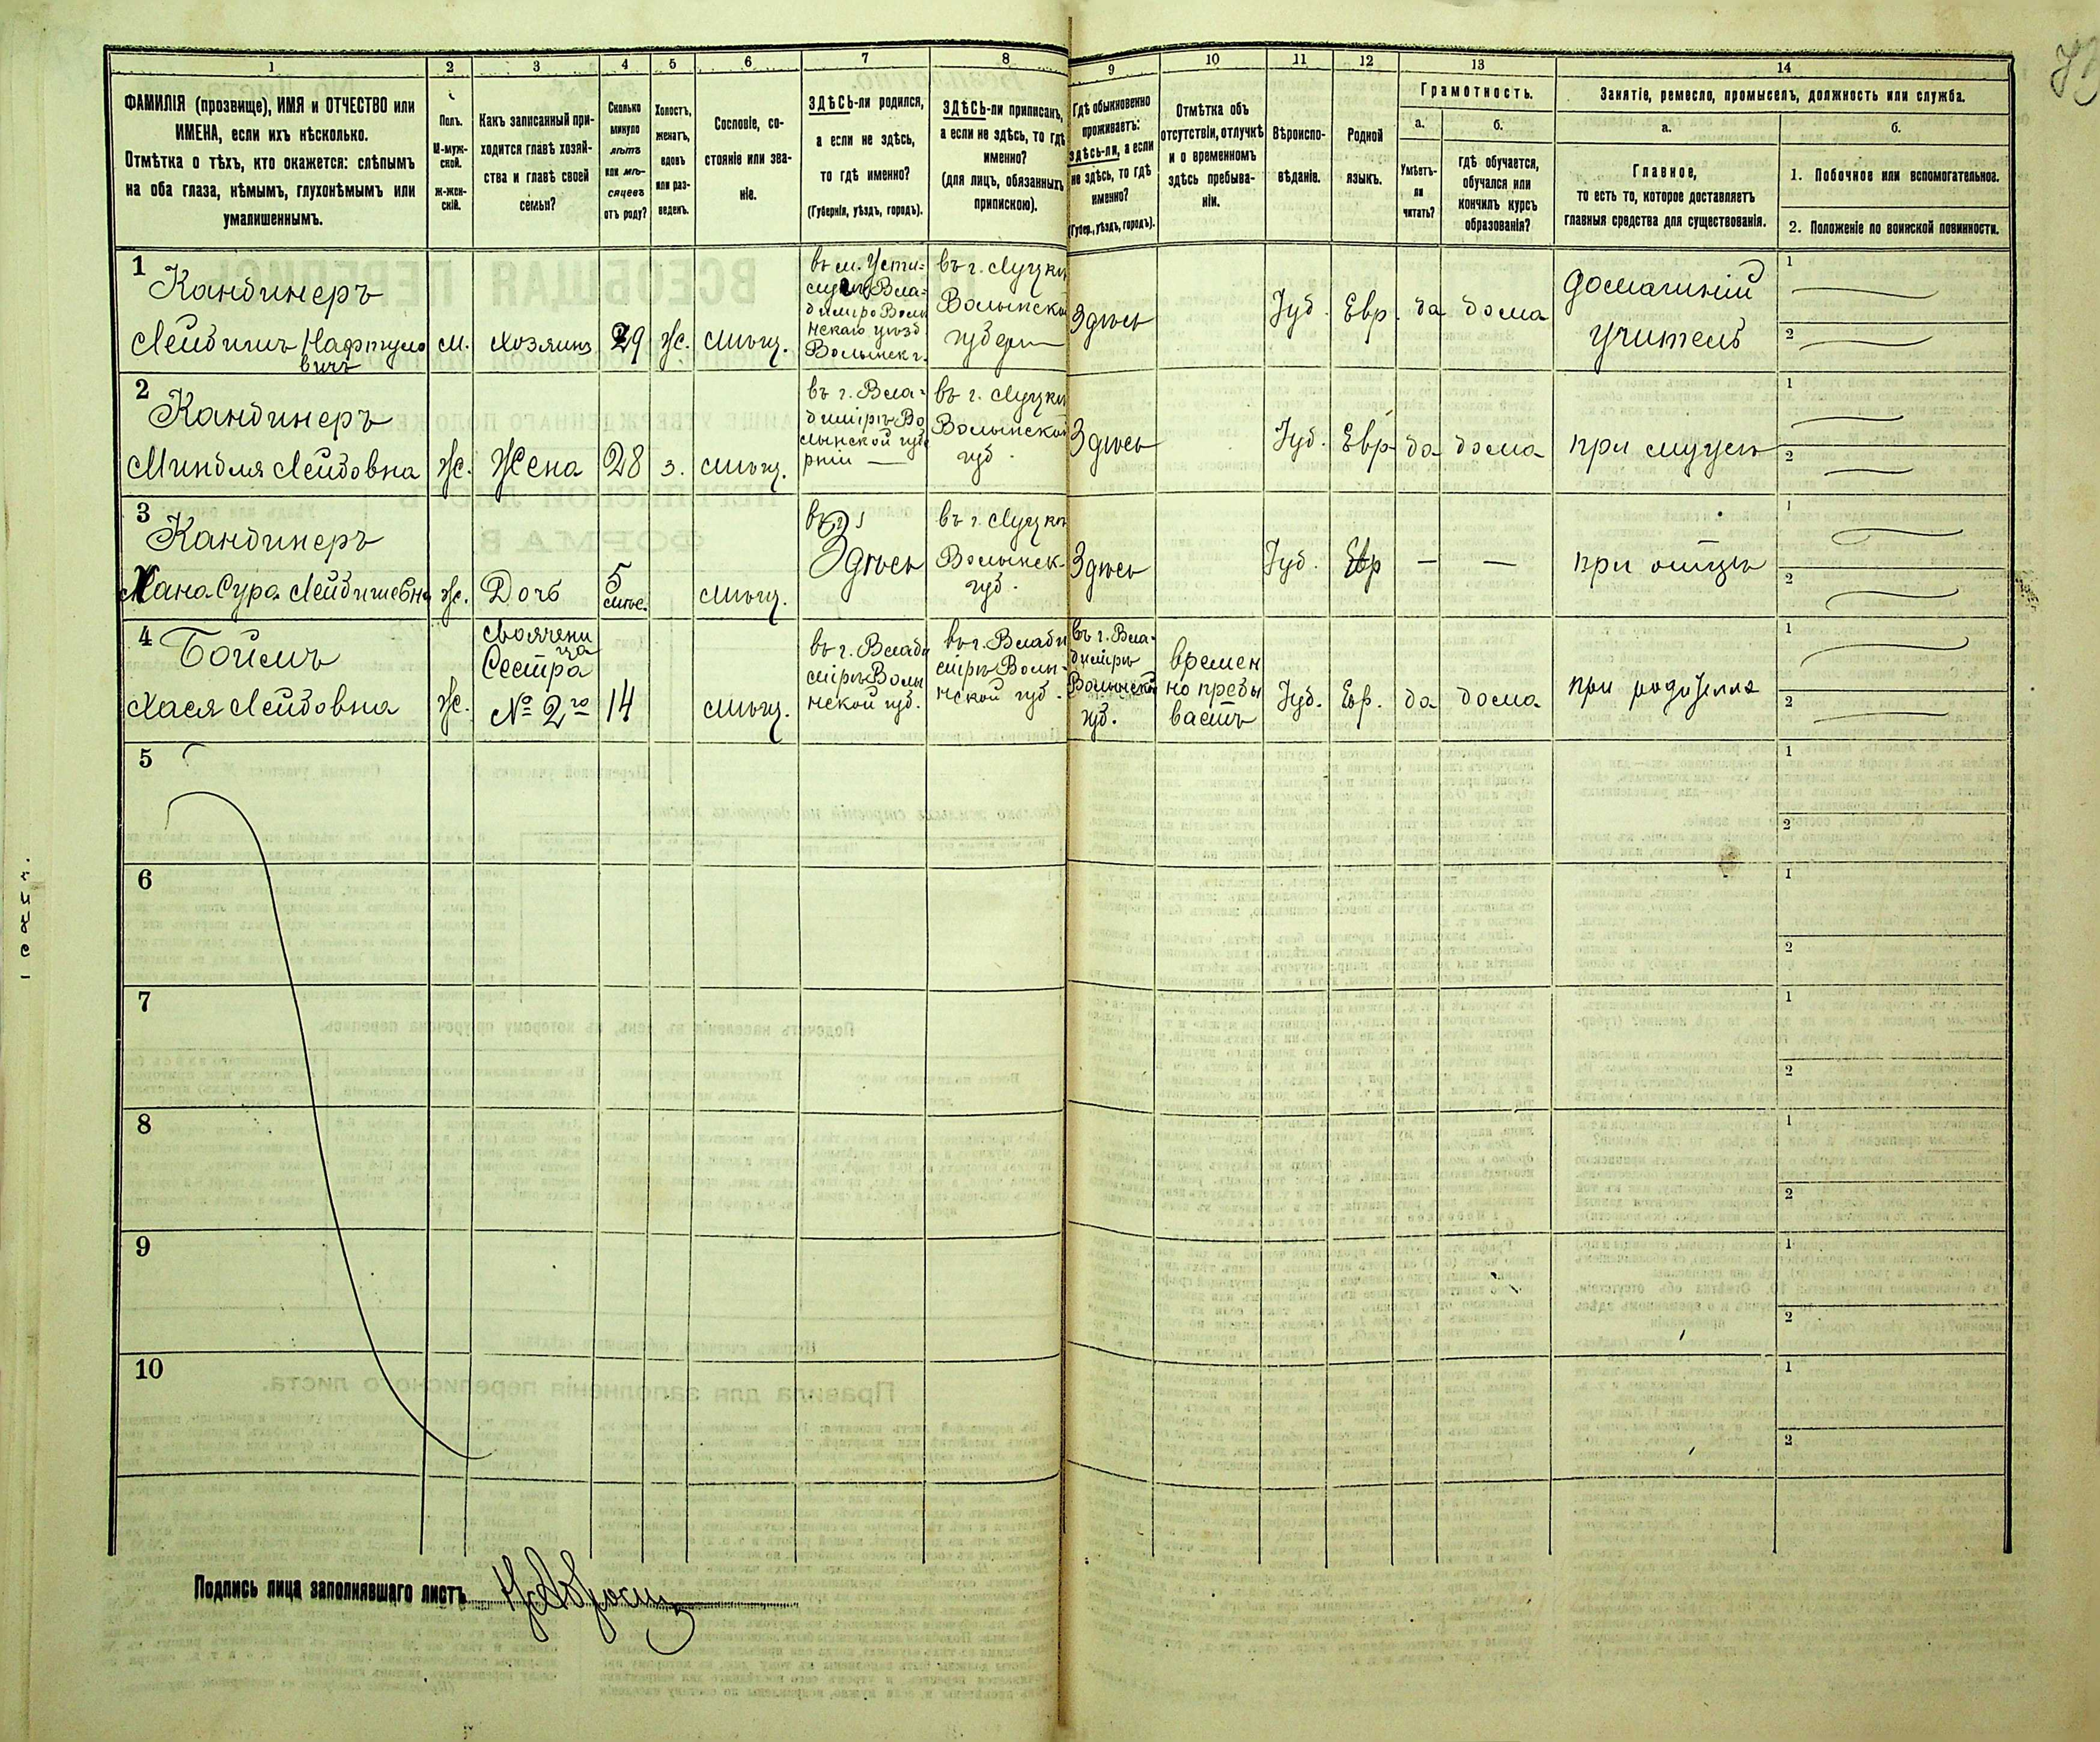 1
2
3
4
5
6
7
8
9
10
11
12
13
14
ФАМИЛІЯ (прозвище), ИМЯ и ОТЧЕСТВО или
ИМЕНА, если ихъ нѣсколько.
Отмѣтка о тѣхъ, кто окажется: слѣпымъ
на оба глаза, нѣмымъ, глухонѣмымъ или
умалишеннымъ.
Полъ.
М-муж-
ской.
ж-жен-
скій.
Какъ записанный при-
ходится главѣ хозяй-
ства и главѣ своей
семьи?
Сколько
минуло
лѣтъ
или мѣ-
сяцевъ
отъ роду?
Холостъ,
женатъ,
вдовъ
или раз-
веденъ.
Сословіе, со-
стояніе или зва-
ніе.
ЗДѢСЬ-ли родился,
а если не здѣсь,
то гдѣ именно?
(Губернія, уѣздъ, городъ).
ЗДѢСЬ-ли приписанъ,
а если не здѣсь, то гдѣ
именно?
(для лицъ, обязанныхъ
припискою).
Гдѣ обыкновенно
проживаетъ:
здѣсь-ли, а если
не здѣсь, то гдѣ
именно?
(Губер., уѣздъ, городъ).
Отмѣтка объ
отсутствіи, отлучкѣ
и о временномъ
здѣсь пребыва-
ніи.
Вѣроиспо-
вѣданіе.
Родной
языкъ.
Грамотность.
а.
Умѣетъ-
ли
читать?
б.
гдѣ обучается,
обучался или
кончилъ курсъ
образованія?
Занятіе, ремесло, промыселъ, должность или служба.
а.
Главное,
то есть то, которое доставляетъ
главныя средства для существованія.
б.
1. Побочное или вспомогательное.
2. Положеніе по воинской повинности.
1
Кандинеръ
Лейбишъ Нафтуло
вичъ
м.
хозяинъ
29
ж.
мѣщ.
въ м. Усти-
лугѣ Вла-
диміро Волы
нскаго уѣзд
Волынск г.
въ г. Луцкѣ
Волынской
губерн
Здѣсь
Іуд.
Евр.
да
дома
домашній
учитель
1
2
2
Кандинеръ
Миндля Лейбовна
Ж.
Жена
28
з.
мѣщ.
въ г. Вла-
димірѣ Во
лынской губе
рніи
въ г. Луцкѣ
Волынской
губ.
Здѣсь
Іуд.
Евр
да
дома
при мужѣ
1
2
3
Кандинеръ
Хана Сура Лейбишевна
Ж.
Дочь
5
мѣс.
мѣщ.
въ г.
Здѣсь
въ г. Луцкѣ
Волынск.
губ.
Здѣсь
Іуд.
Евр
—
—
при отцѣ
1
2
4
Боймъ
Хася Лейбовна
Ж.
своячени
ца
Сестра
№ 2го
14
мѣщ.
въ г. Влади
мірѣ Волы
нской губ.
въ г. Влади
мірѣ Волы-
нской губ.
въ г. Вла-
димірѣ
Волынской
губ.
времен
но пребы
ваетъ
Іуд.
Евр.
да
дома
1
2
5
1
2
6
1
2
7
1
2
8
1
2
9
1
2
10
1
2
Подпись лица заполнявшаго листъ